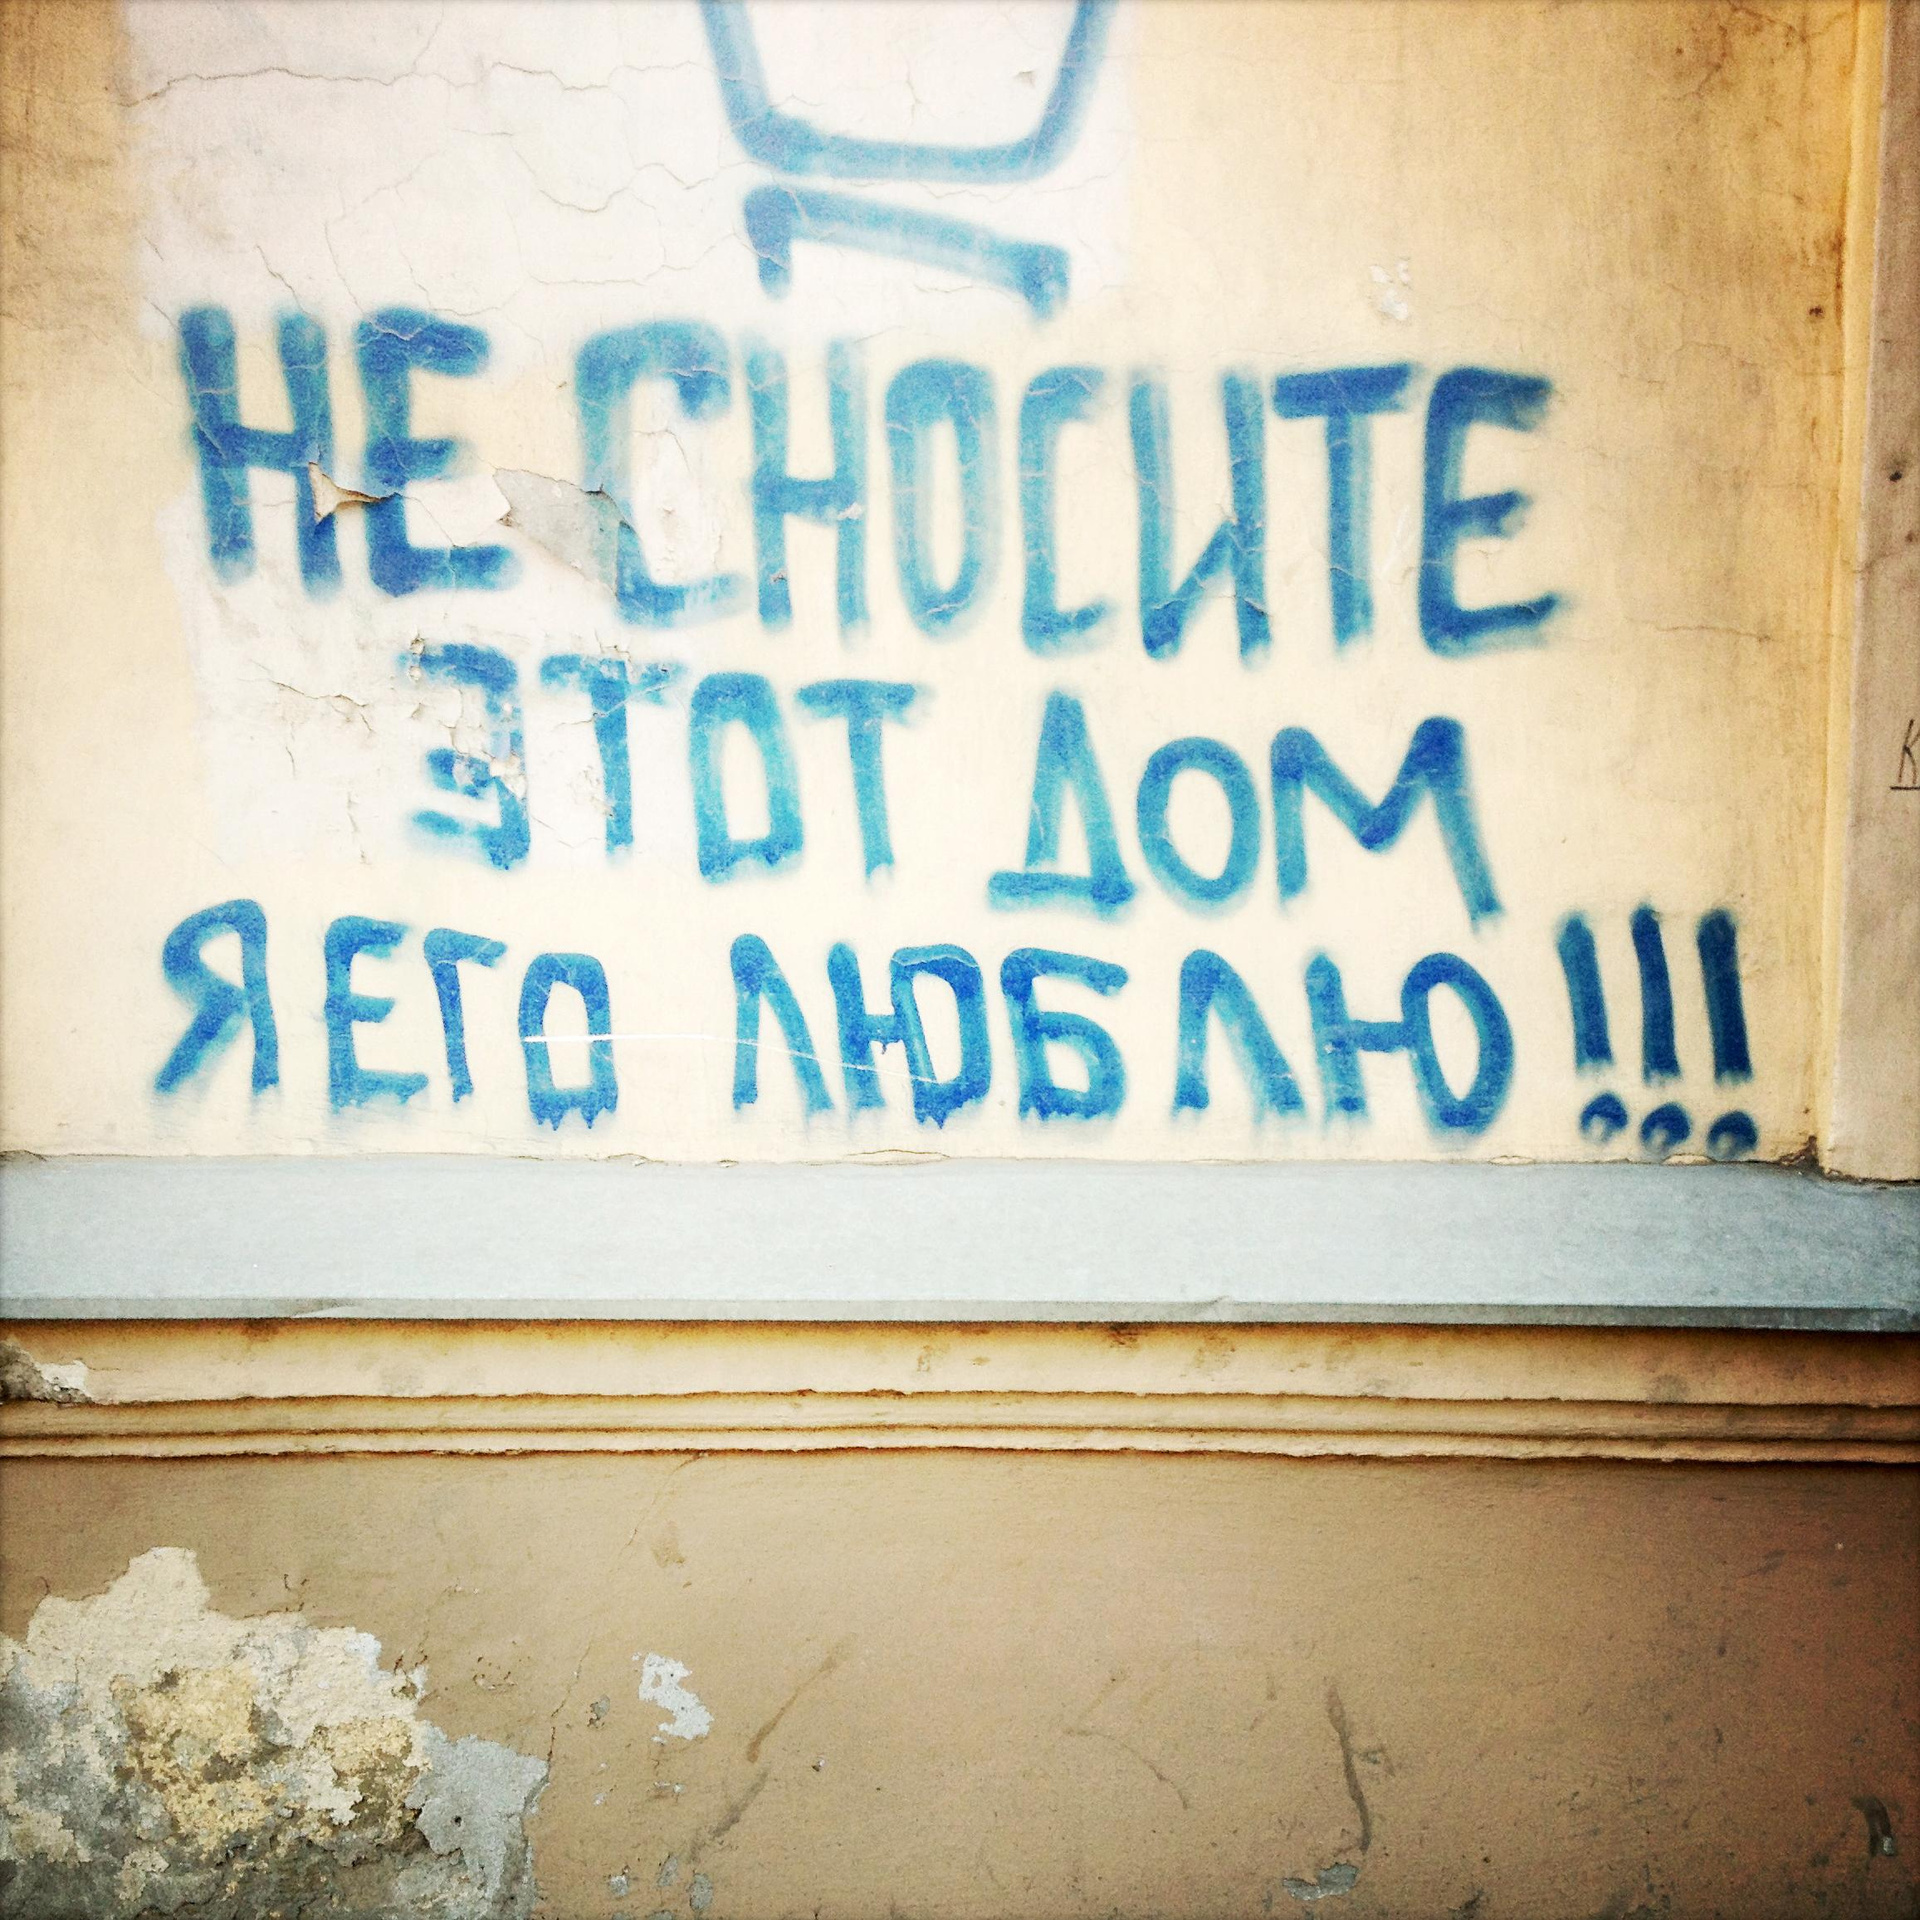 НЕ СНОСИТЕ
ЭТОТ ДОМ
Я ЕГО ЛЮБЛЮ!!!